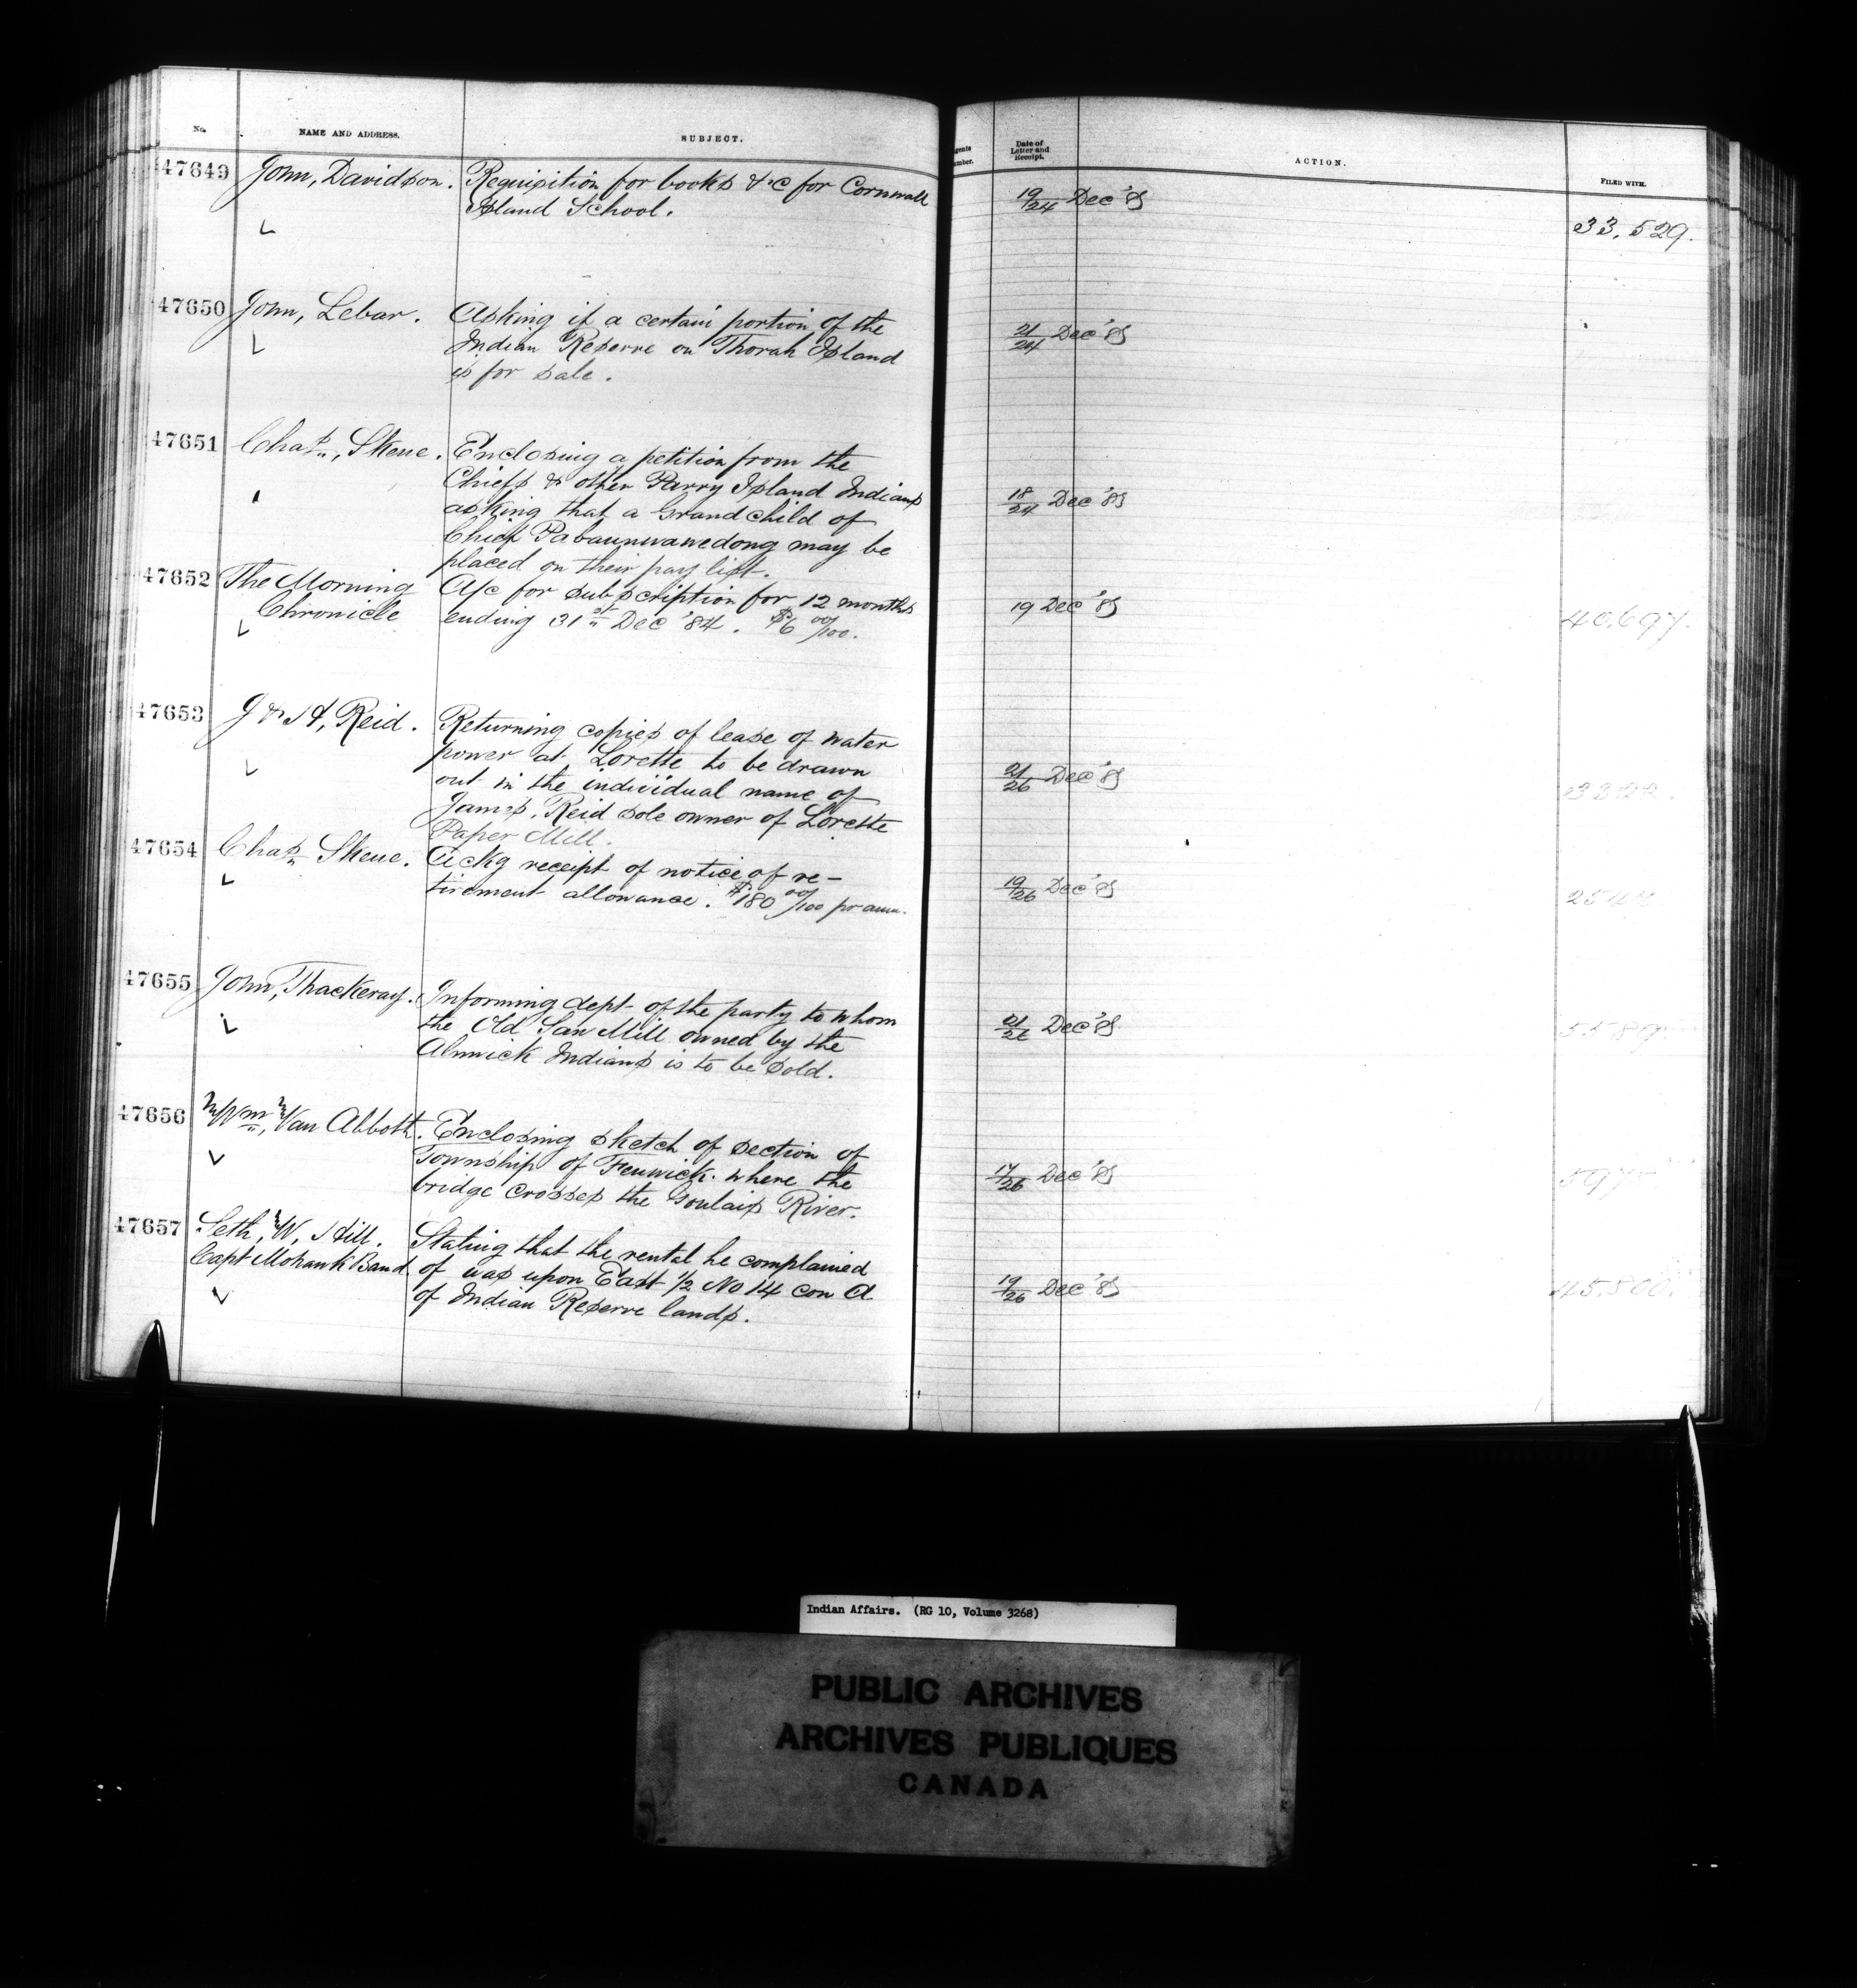 No. NAME AND ADDRESS. SUBJECT. Date of Letter and Receipt. ACTION. FILED WITH.
47649 John, Davidson. Requisition for books &c for Cornwall
Island School. 19/24 Dec '85 33,529.
47650 John, Lebar. Asking if a certain portion of the
Indian Reserve on Thorah Island 21/24 Dec '85
is for sale.
47651 Chas., Skene. Enclosing a petition from the
Chiefs & other Parry Island Indians
asking that a Grandchild of 18/24 Dec '85
Chief Pabaunwawedong may be
placed on their pay list.
47652 The Morning A/c for subscription for 12 months
Chronicle ending 31st Dec '84. $6 00/100. 19 Dec '85 40,697.
47653 J & A, Reid. Returning copies of lease of water
power at Lorette to be drawn
out in the individual name of 21/26 Dec '85
James, Reid sole owner of Lorette
Paper Mill.
47654 Chas. Skene. Ackg receipt of notice of re-
tirement allowance. $180 00/100 pr ann. 19/26 Dec '85
47655 John, Thackeray. Informing dept of the party to whom
the Old Saw Mill owned by the 21/26 Dec '85
Alnwick Indians is to be sold.
47656 Wm., Van Abbott. Enclosing sketch of section of
Township of Fenwick where the 17/26 Dec '85
bridge crosses the Goulais River.
47657 Seth, W, Hill. Stating that the rental he complained
Capt Mohawk Band of was upon East 1/2 No 14 con A 19/26 Dec '85 45,800.
of Indian Reserve lands.
Indian Affairs. (RG 10, Volume 3268)
PUBLIC ARCHIVES
ARCHIVES PUBLIQUES
CANADA